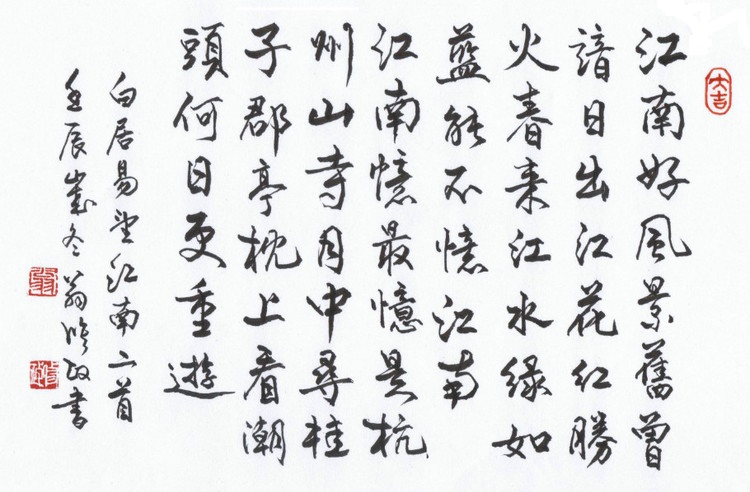 大吉
江南好風景舊曾
諳日出江花紅勝
火春来江水緑如
藍能不憶江南
江南憶最憶是杭
州山寺月中尋桂
子郡亭枕上看潮
頭何日更重遊
白居易望江南二首
壬辰歲冬翁政書